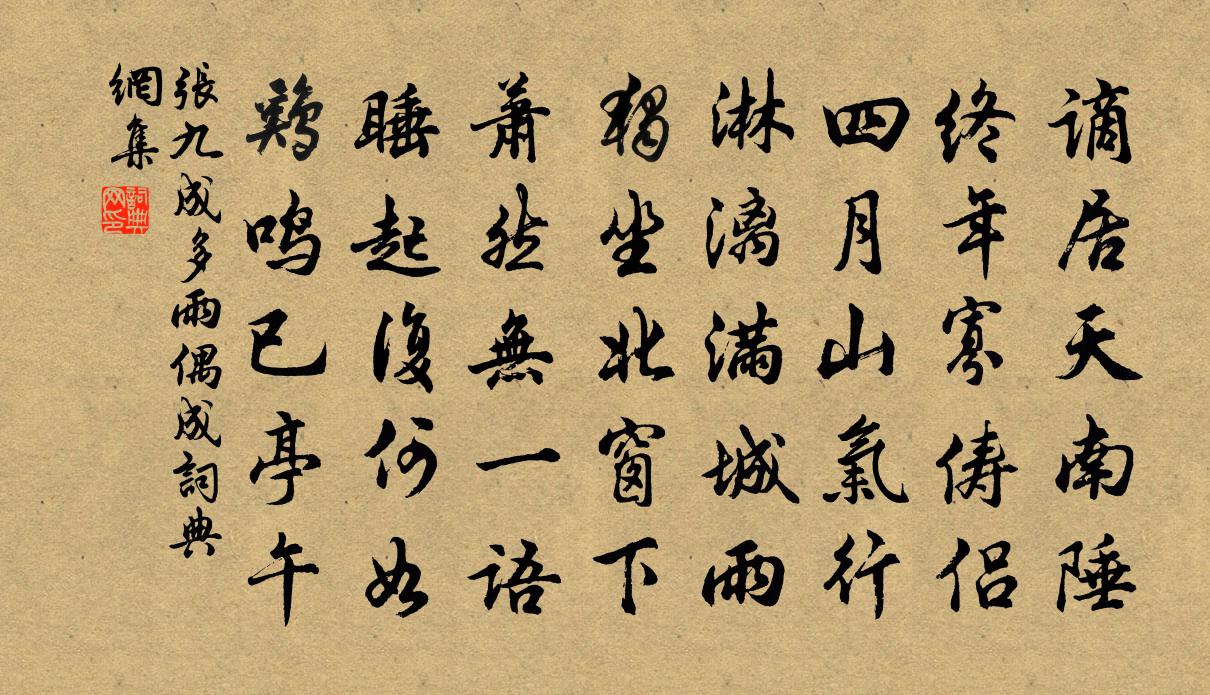 謫居天南陲
終年寡儔侶
四月山氣行
淋漓滿城雨
獨坐北窗下
蕭然無一語
睡起復何如
鷄鳴已亭午
張九成多雨偶成詞典
網集
詞典
网印